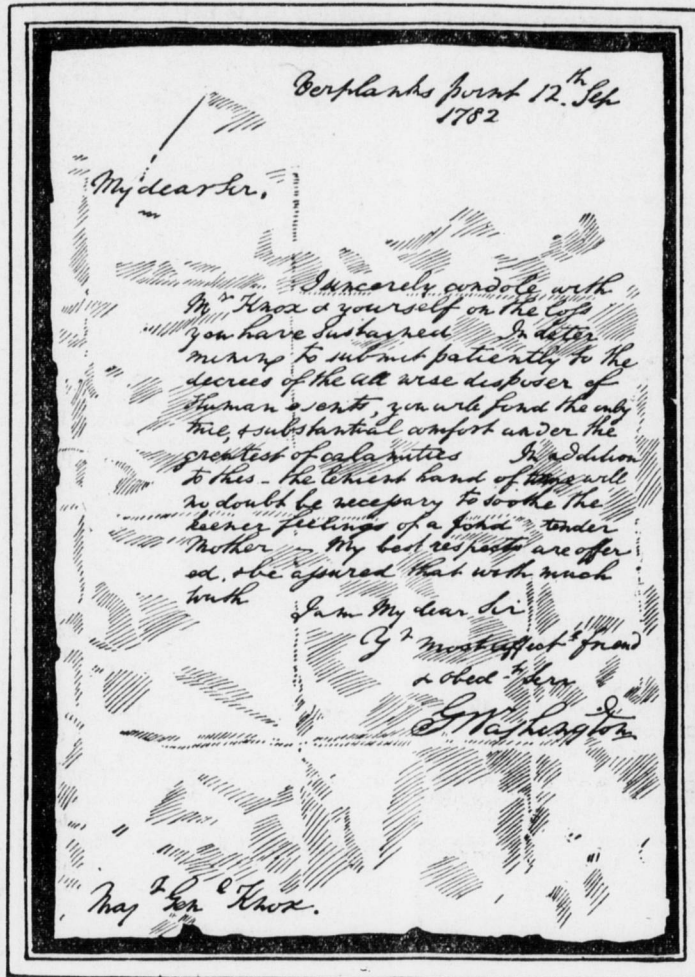 Verplanks point 12.th Sep
1782
My dear Sir.
I sincerely condole with
Mrs Knox & yourself on the loss
you have sustained In deter
mining to submit patiently to the
decrees of the all wise disposer of
Human events, you will find the only
true, & substantial comfort under the
greatest of calamities In addition
to this – the lenient hand of time will
no doubt be necessary to soothe the
keener feelings of a fond & tender
Mother – My best respects are offer
ed, & be assured that with much
truth I am My dear Sir
Yr most affecte friend
& obedt Serv
G Washington
Majr Genl Knox.